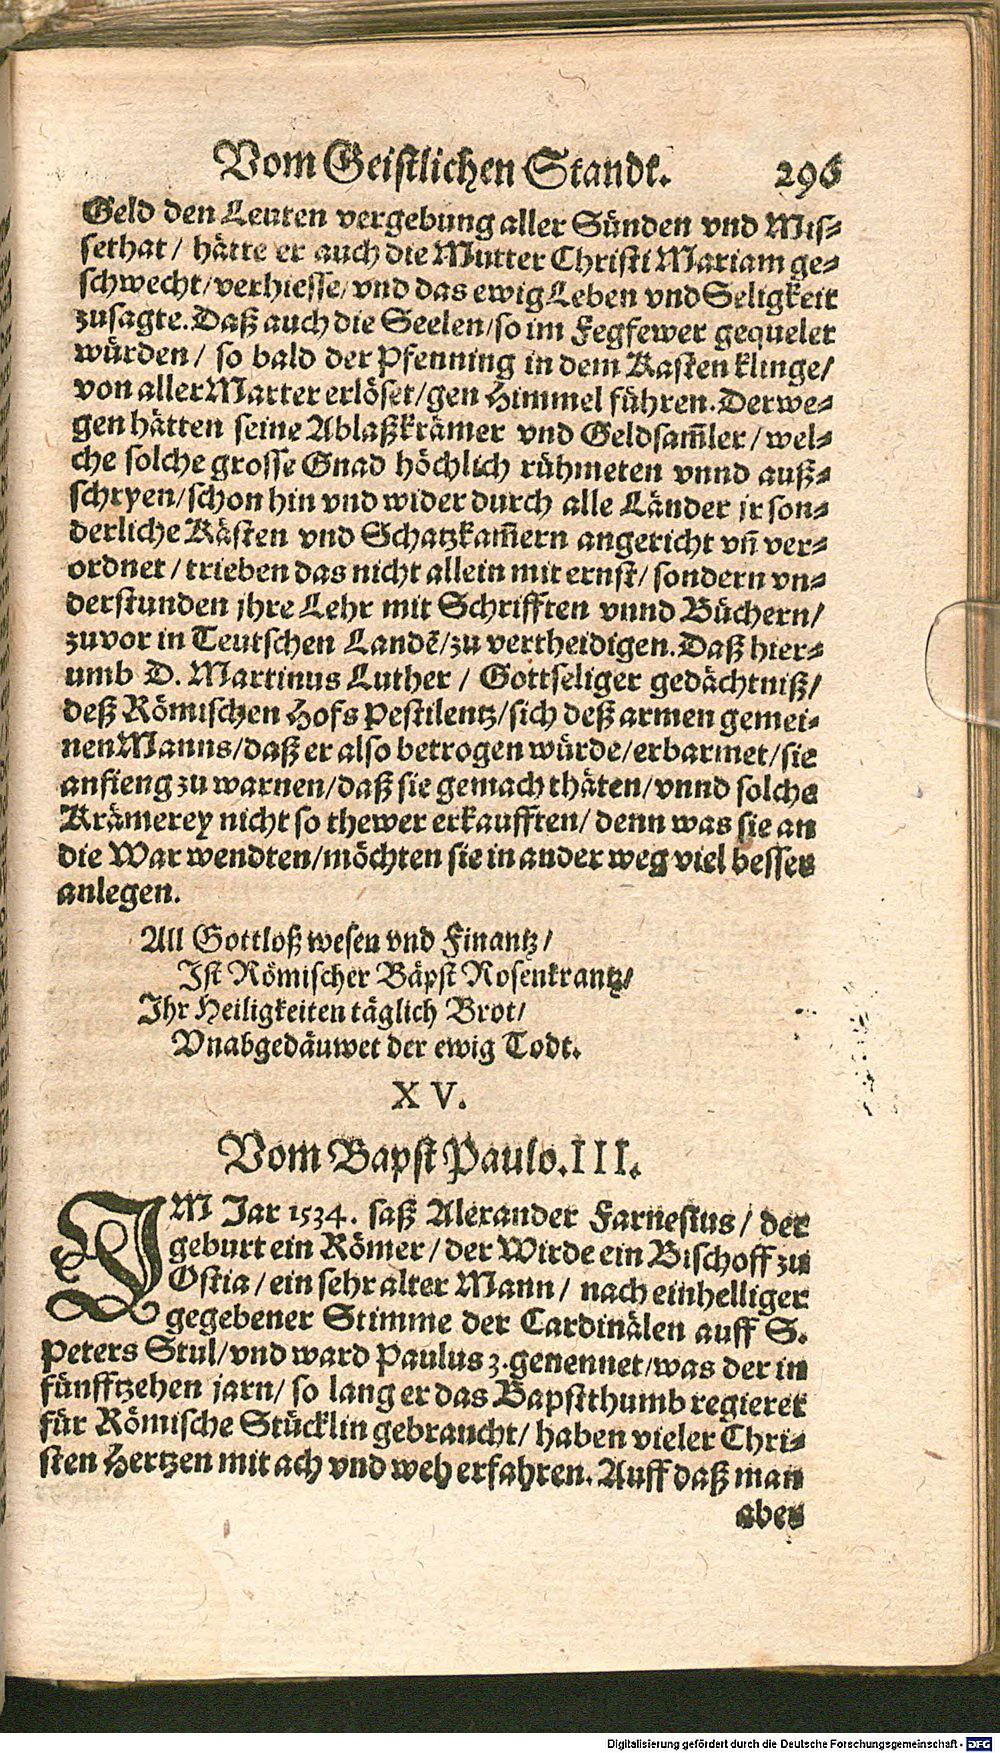 Vom Geistlichen Standt. 296
Geld den Leuten vergebung aller Sünden vnd Mis-
sethat / hätte er auch die Mutter Christi Mariam ge-
schwecht/verhiesse/vnd das ewig Leben vnd Seligkeit
zusagte. Daß auch die Seelen/so im Fegfewer gequelet
würden / so bald der Pfenning in dem Kasten klinge/
von aller Marter erlöset/gen Himmel führen. Derwe-
gen hätten seine Ablaßkrämer vnd Geldsam̃ler/wel-
che solche grosse Gnad höchlich rühmeten vnnd auß-
schryen/schon hin vnd wider durch alle Länder jr son-
derliche Kästen vnd Schatzkam̃ern angericht vñ ver-
ordnet / trieben das nicht allein mit ernst / sondern vn-
derstunden jhre Lehr mit Schrifften vnnd Büchern/
zuvor in Teutschen Landẽ/zu vertheidigen. Daß hier-
umb D. Martinus Luther / Gottseliger gedächtniß/
deß Römischen Hofs Pestilentz/sich deß armen gemei-
nen Manns/daß er also betrogen würde/erbarmet/sie
anfieng zu warnen/daß sie gemach thäten/vnnd solche
Krämerey nicht so thewer erkaufften/ denn was sie an
die War wendten/möchten sie in ander weg viel besser
anlegen.
All Gottloß wesen vnd Finantz/
Ist Römischer Bäpst Rosenkrantz/
Ihr Heiligkeiten täglich Brot/
Vnabgedäuwet der ewig Todt.
XV.
Vom Bapst Paulo. III.
IM Jar 1534. saß Alexander Farnesius / der
geburt ein Römer / der Wirde ein Bischoff zu
Ostia / ein sehr alter Mann / nach einhelliger
gegebener Stimme der Cardinälen auff S.
Peters Stul/vnd ward Paulus 3. genennet/was der in
fünfftzehen jarn/ so lang er das Bapstthumb regieret
für Römische Stücklin gebraucht/ haben vieler Chri-
sten Hertzen mit ach vnd weh erfahren. Auff daß man
aber
Digitalisierung gefördert durch die Deutsche Forschungsgemeinschaft - DFG